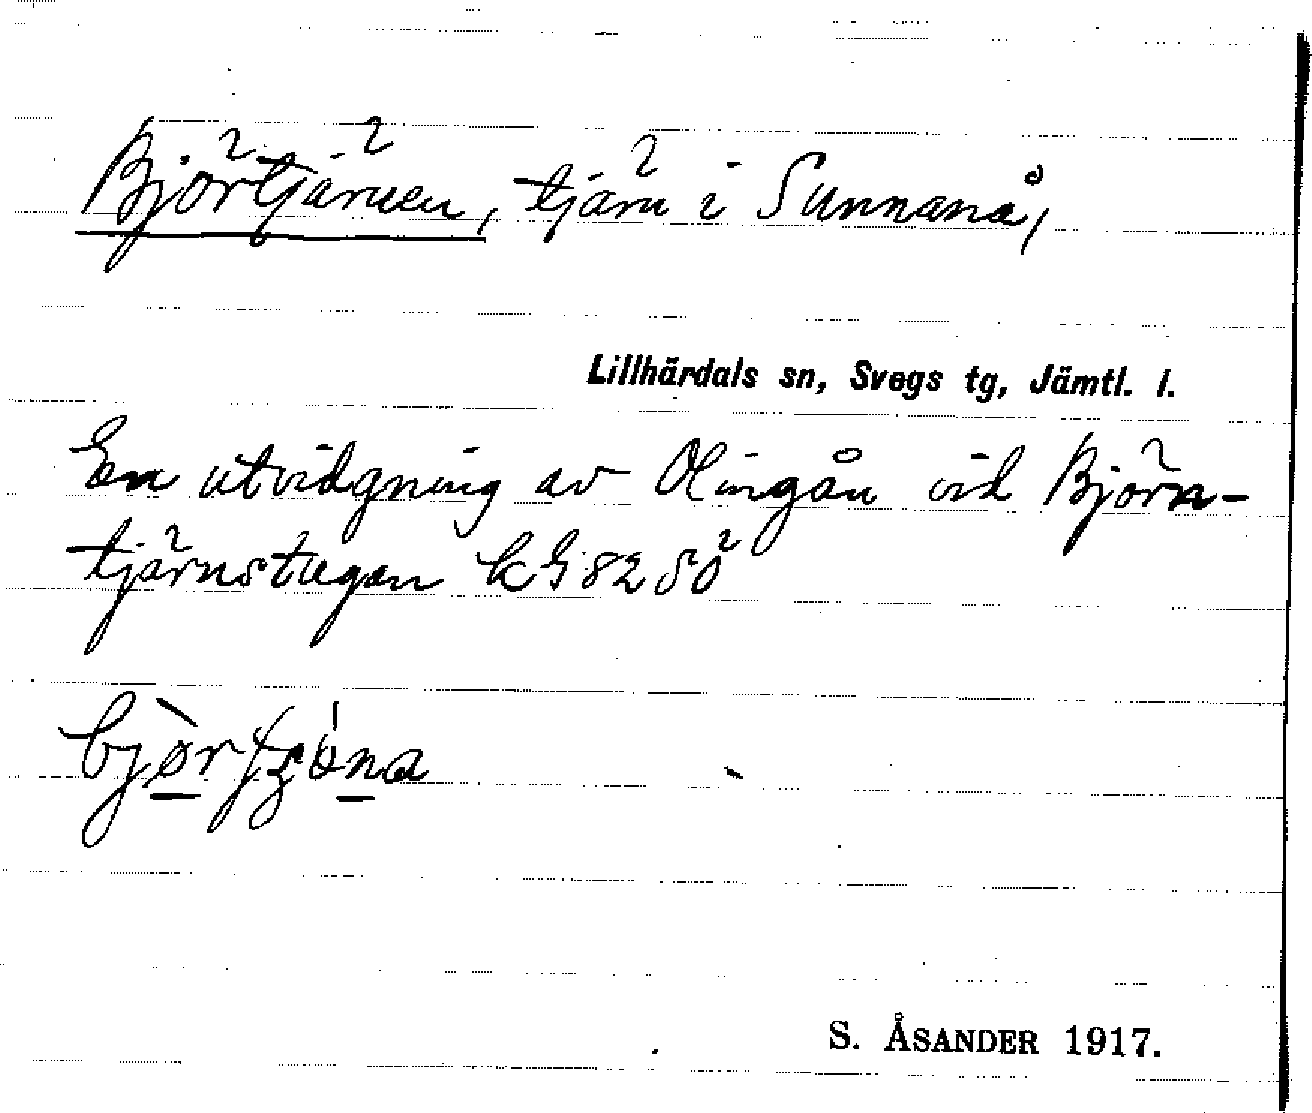 Björtjärnen, tjärn i Sunnanå,
Lillhärdals sn, Svegs tg, Jämtl. l.
En utvidgning av Olingån vid Björn-
tjärnstugan kG 82 SÖ
S. ÅSANDER 1917.